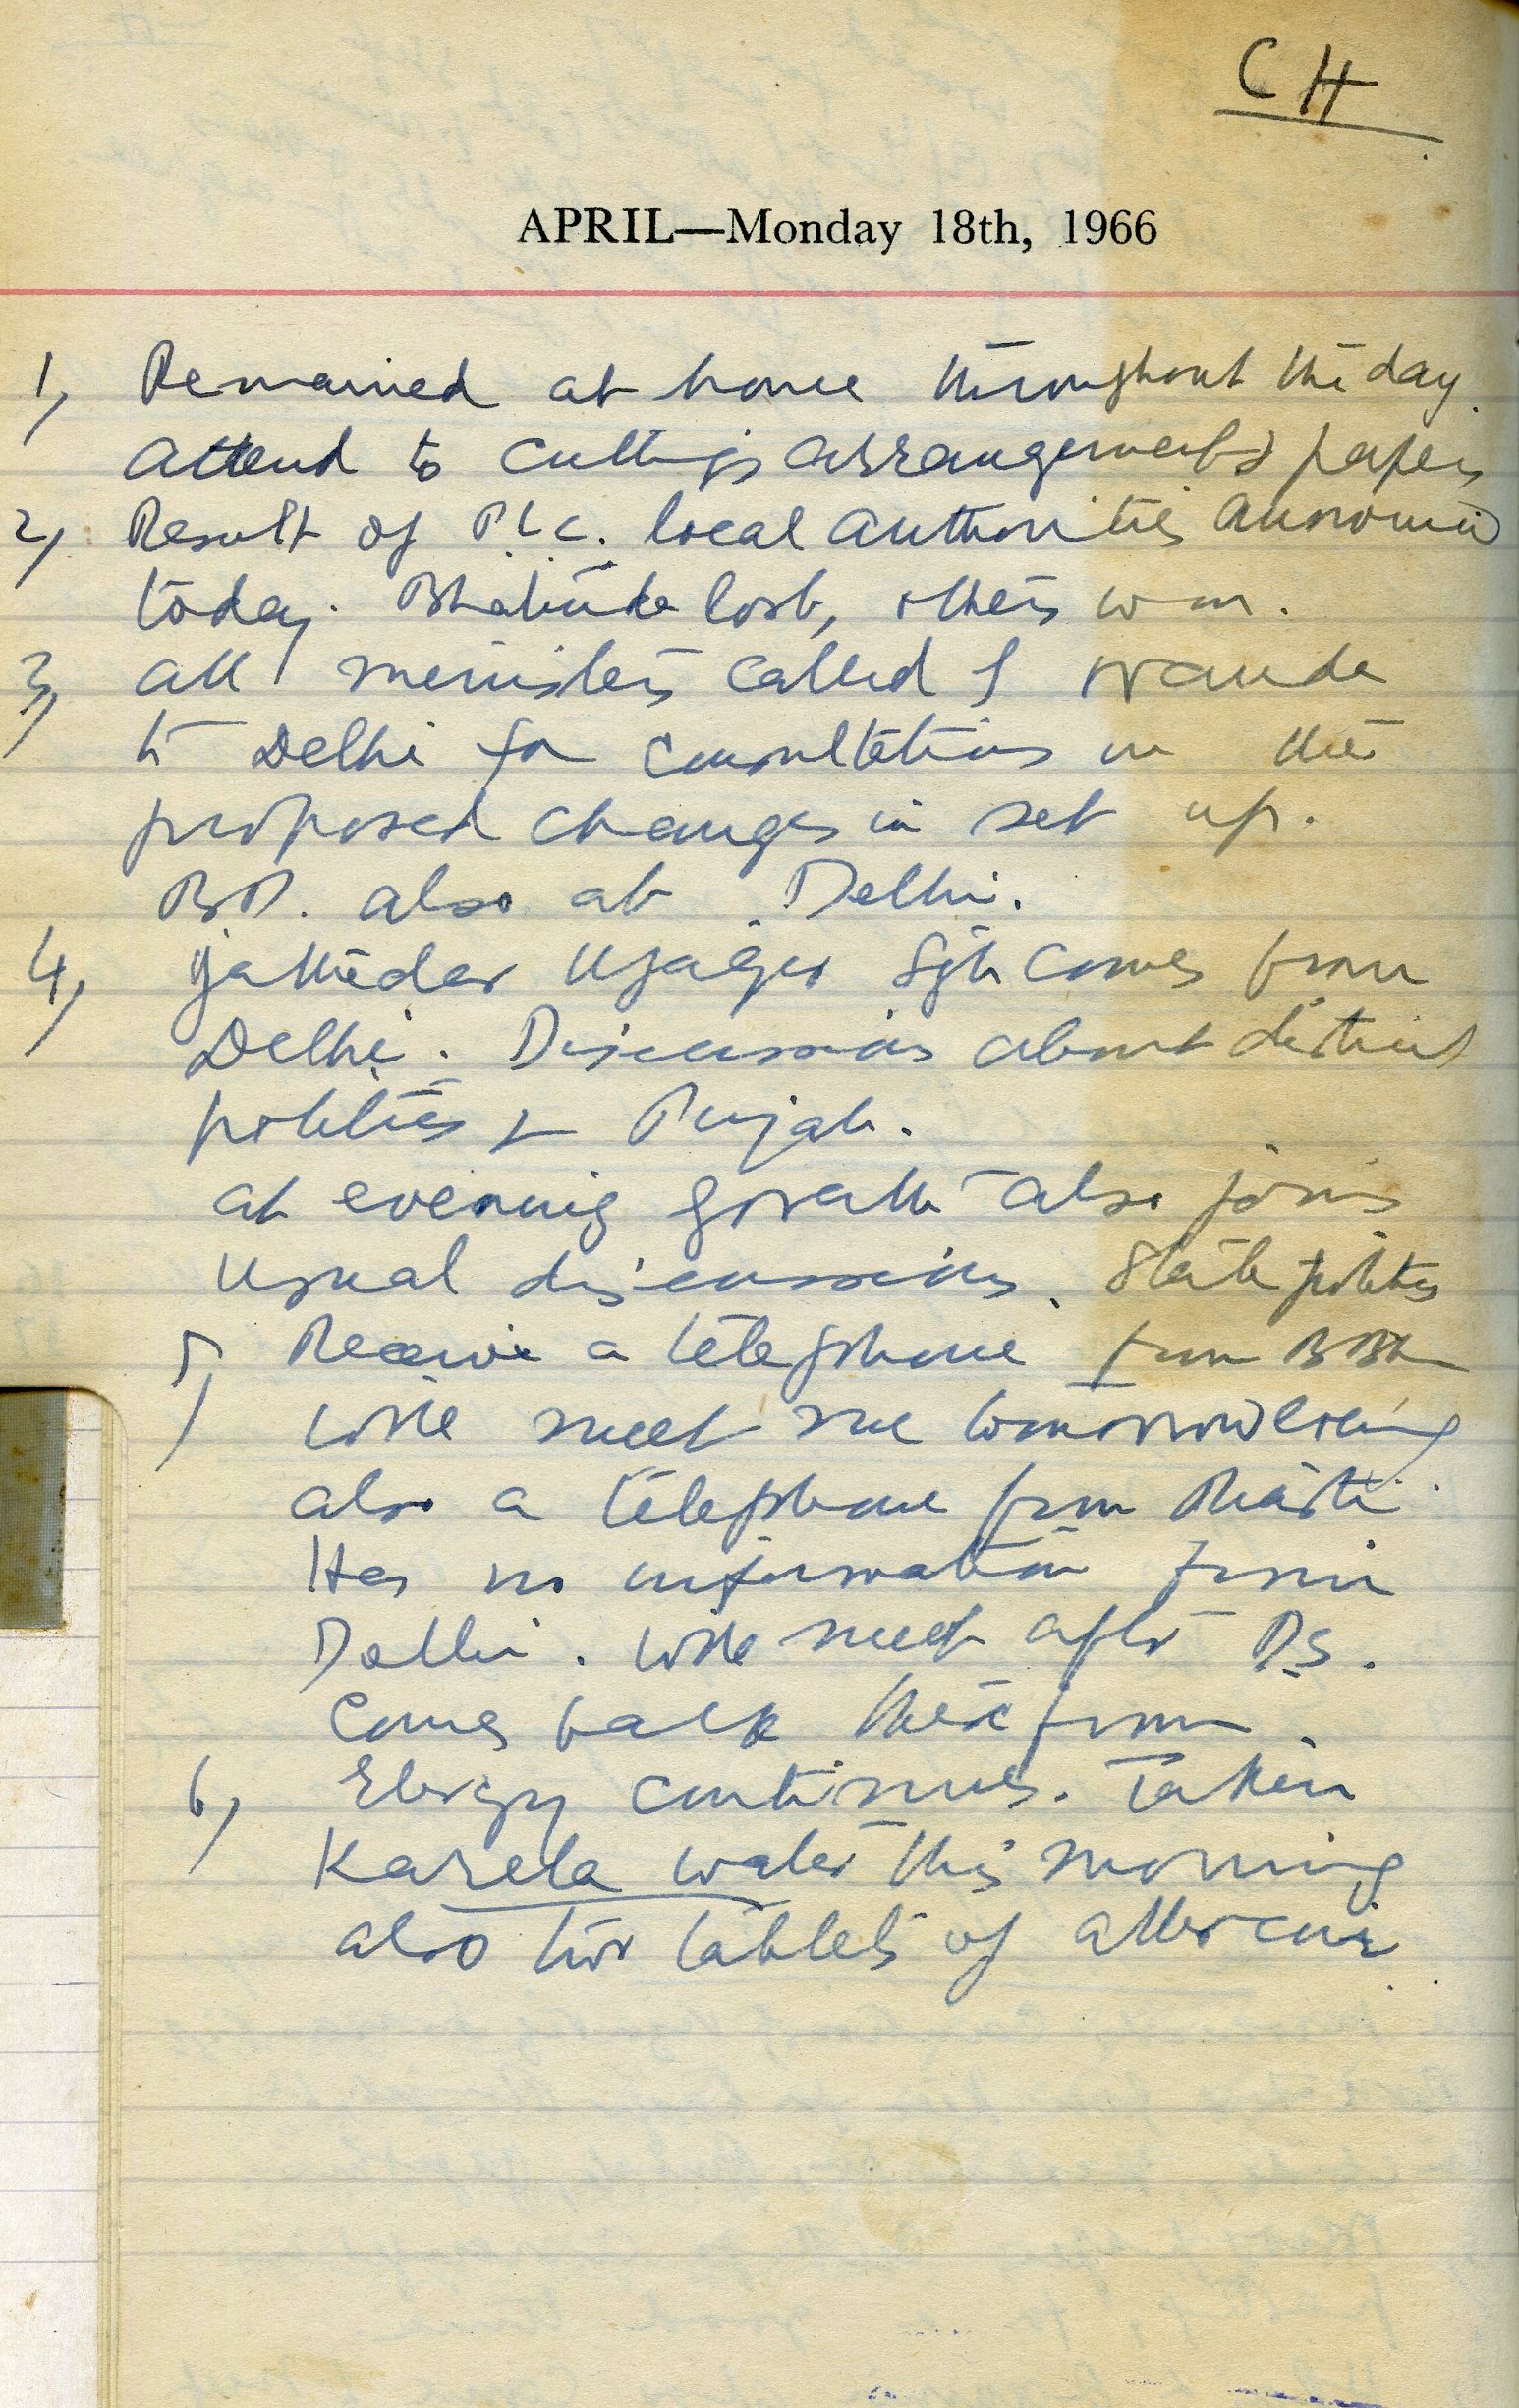 CH
APRIL—Monday 18th, 1966
1, Remained at home throughout the day
attend to cuttings arrangements papers
2, Result of P.L.C. local authorities announced
today. Bhatinda lost, others won.
3, all ministers called
to Delhi for consultations on the
proposed changes in set up.
also at Delhi.
4, Jathedar Ujagar Sgh comes from
Delhi. Discussions about district
politics & Punjab.
at evening also joins
usual discussions. State politics
5, Receive a telephone from
will meet me tomorrow evening
also a telephone from
Has no information from
Delhi. will meet after D.S.
comes back there from.
6, continues. Taken
Karela water this morning
also two tablets of